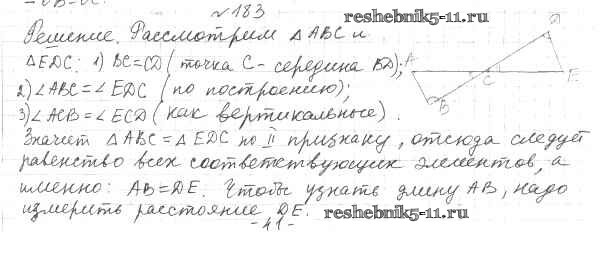 – ОВ=ОС.
№183
reshebnik5-11.ru
Решение. Рассмотрим △ABC и
△EDC: 1) BC=CD (точка C – середина BD);
2) ∠ABC=∠EDC (по построению);
3) ∠ACB=∠ECD (как вертикальные).
A
D
C
E
B
Значит △ABC=△EDC по II признаку, отсюда следует
равенство всех соответствующих элементов, а
именно: AB=DE. Чтобы узнать длину AB, надо
измерить расстояние DE.
reshebnik5-11.ru
-41-